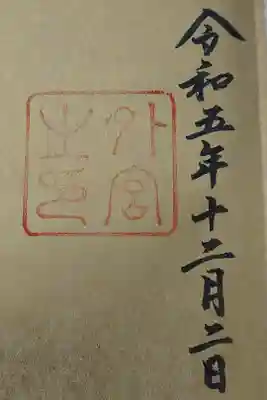 令和五年十二月二日
外宮
之印